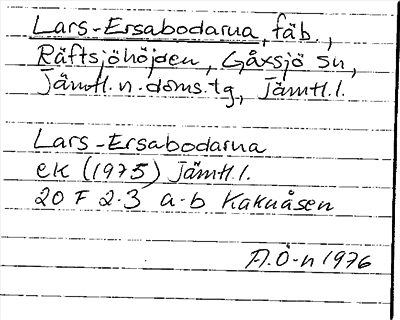 Lars-Ersabodarna, fäb.,
Räftsjöhöjden, Gåxsjö sn,
Jämtl.n.doms.tg, Jämtl.l.
Lars-Ersabodarna
ek (1975) Jämtl.l.
20 F 2-3 a-b Kakuåsen
A.Ö-n 1976